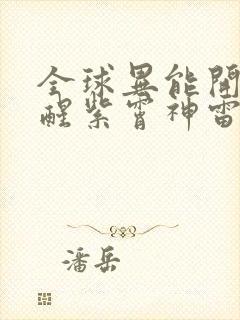 全球異能開
醒紫霄神雷
潘岳